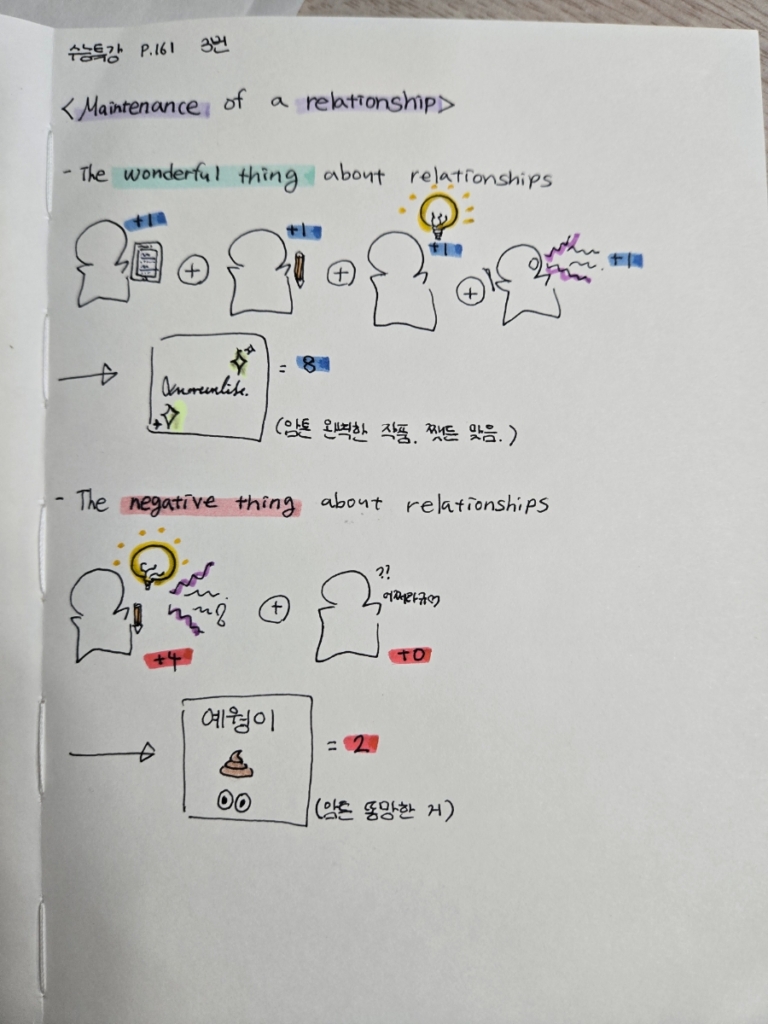 수능특강 P.161 3번
<Maintenance of a relationship>
- The wonderful thing about relationships
+1 +1 +1 +1
= 8
(암튼 완벽한 작품. 쨋든 맞음.)
- The negative thing about relationships
??
어쩌라규
+4 +0
예웡이
= 2
(암튼 똥망한 거)